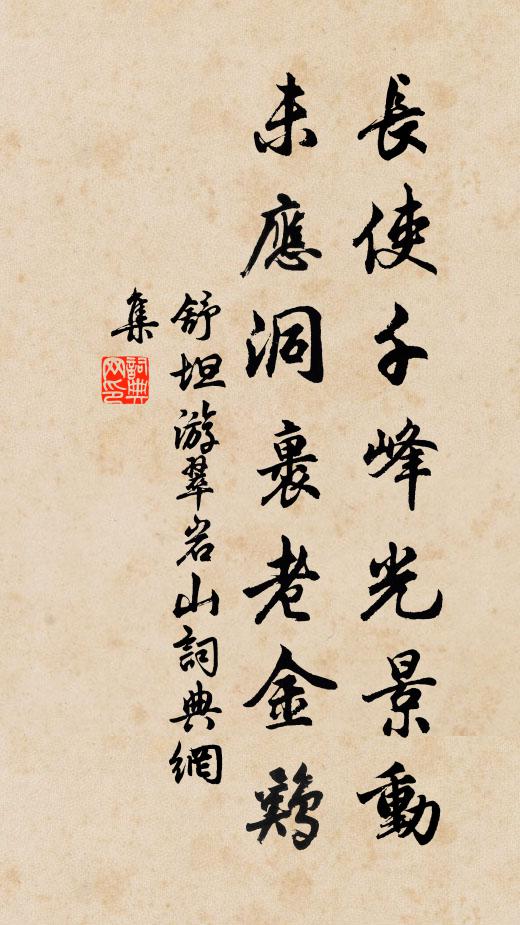 長使千峰光景動
未應洞裏老金鷄
舒坦游翠岩山詞典網
集
詞典網印